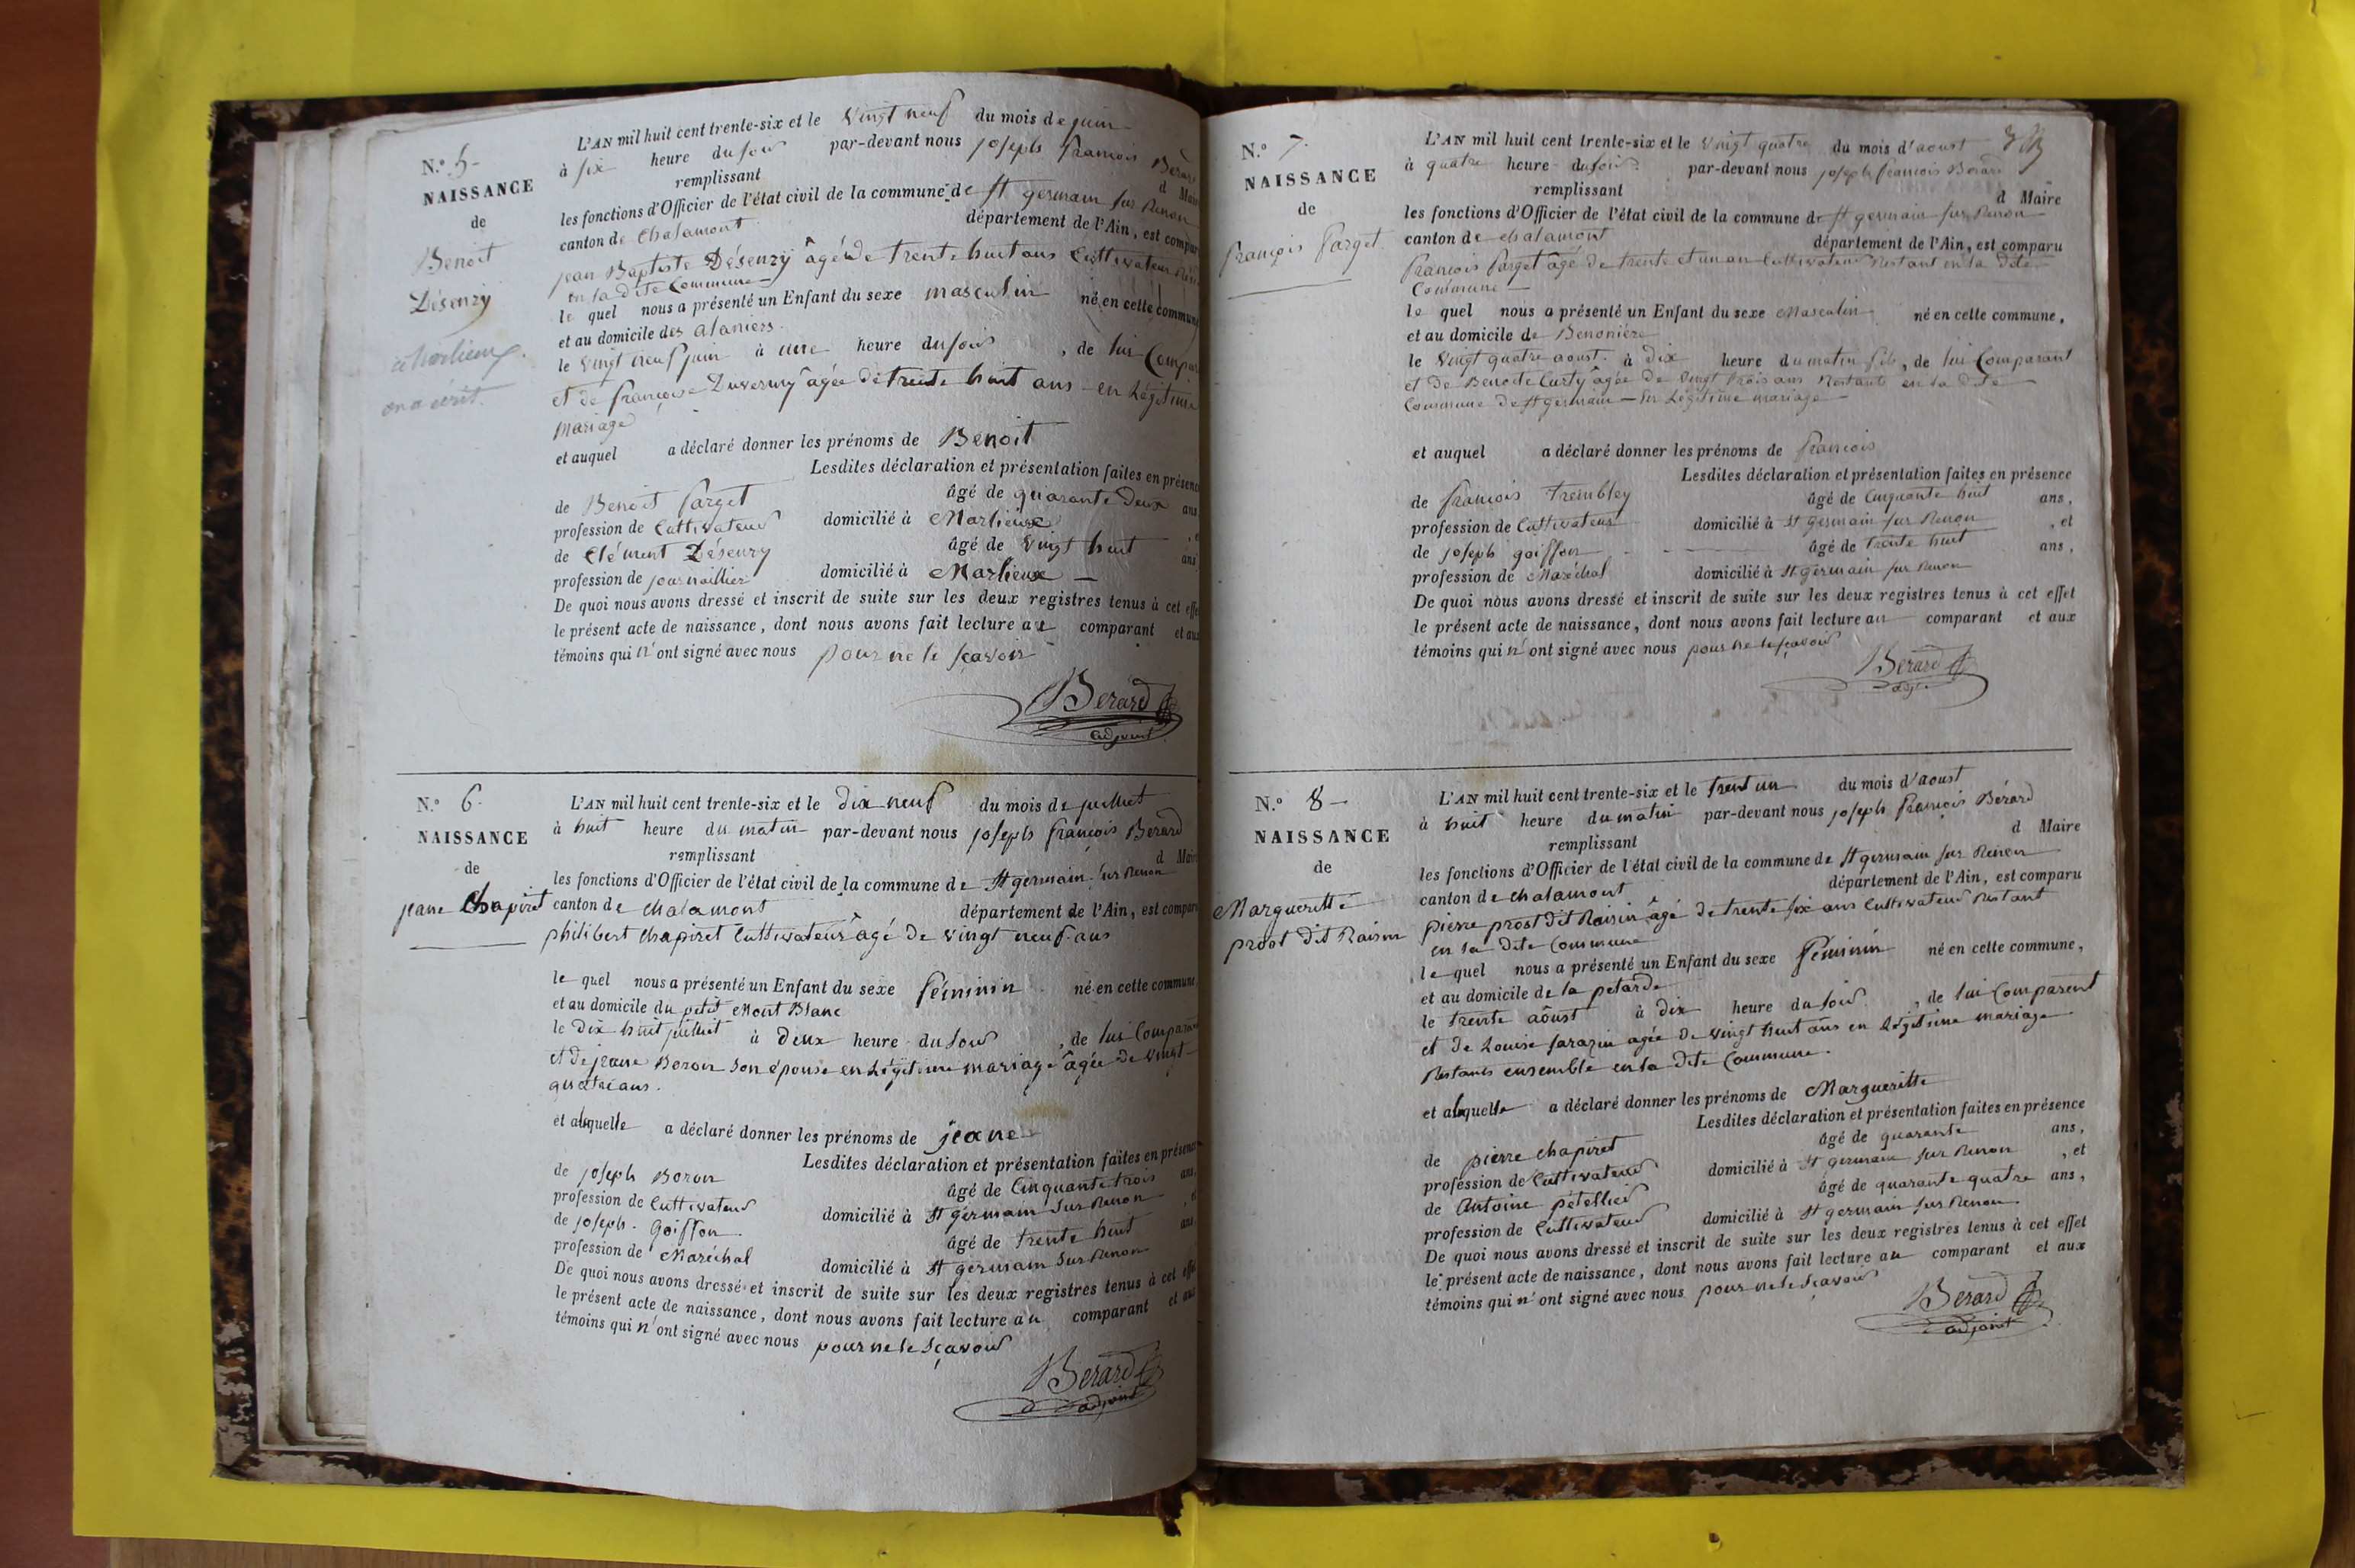 N.º 5-
NAISSANCE
de
Benoit
Désenzy
a Marlieux.
on a écrit.
L'AN mil huit cent trente-six et le vingt neuf du mois de juin
à six heure du soir par-devant nous joseph françois Berard
remplissant d Mair
les fonctions d'Officier de l'état civil de la commune de St germain sur Renon
canton de Chalamont département de l'Ain, est compar
jean Baptiste Désenzy âgé de trente huit ans Cultivateur
en la dite Commune
le quel nous a présenté un Enfant du sexe masculin né en cette commune
et au domicile des alaniers.
le vingt neuf juin à une heure du soir , de lui Compar
et de françoise Duverny âgée de trente huit ans en Légitime
mariage
et auquel a déclaré donner les prénoms de Benoit
Lesdites déclaration et présentation faites en présence
de Benoit Parget âgé de quarante deux ans
profession de Cultivateur domicilié à Marlieux , e
de Clément Désenzy âgé de vingt huit ans
profession de journaillier domicilié à Marlieux —
De quoi nous avons dressé et inscrit de suite sur les deux registres tenus à cet effe
le présent acte de naissance, dont nous avons fait lecture au comparant et aux
témoins qui n'ont signé avec nous pour ne le sçavoir
Berard
adjoint
N.º 6-
NAISSANCE
de
jeane Chapiret
L'AN mil huit cent trente-six et le dix neuf du mois de juillet
à huit heure du matin par-devant nous joseph françois Berard
remplissant d Mair
les fonctions d'Officier de l'état civil de la commune de St germain sur Renon
canton de chalamont département de l'Ain, est compar
philibert chapiret Cultivateur âgé de vingt neuf ans
le quel nous a présenté un Enfant du sexe féminin né en cette commune,
et au domicile du petit Mont Blanc
le dix huit juillet à deux heure du soir , de lui Comparan
et de jeane Boron son épouse en Légitime mariage âgée de vingt
quatre ans.
et a laquelle a déclaré donner les prénoms de jeane
Lesdites déclaration et présentation faites en présenc
de joseph Boron âgé de Cinquante trois ans,
profession de Cultivateur domicilié à St germain sur Renon , e
de joseph goiffon âgé de trente huit ans
profession de Maréchal domicilié à St germain sur Renon
De quoi nous avons dressé et inscrit de suite sur les deux registres tenus à cet effe
le présent acte de naissance, dont nous avons fait lecture au comparant et aux
témoins qui n'ont signé avec nous pour ne le sçavoir
Berard
adjoint
N.º 7.
NAISSANCE
de
françois Parget
L'AN mil huit cent trente-six et le vingt quatre du mois d'aoust
à quatre heure du soir par-devant nous joseph francois Berard
remplissant d Maire
les fonctions d'Officier de l'état civil de la commune de St germain sur Renon
canton de chalamont département de l'Ain, est comparu
francois Parget âgé de trente et un an Cultivateur Restant en la dite
Commune —
le quel nous a présenté un Enfant du sexe Masculin né en cette commune,
et au domicile de Benonière
le vingt quatre aoust à dix heure du matin , de lui Comparant
et de Benoite Curty âgée de vingt trois ans Restant en la dite
Commune de St germain — en Légitime mariage —
et auquel a déclaré donner les prénoms de francois
Lesdites déclaration et présentation faites en présence
de francois Trembley âgé de Cinquante huit ans,
profession de Cultivateur domicilié à St germain sur Renon , et
de joseph goiffon âgé de trente huit ans,
profession de Maréchal domicilié à St germain sur Renon
De quoi nous avons dressé et inscrit de suite sur les deux registres tenus à cet effet
le présent acte de naissance, dont nous avons fait lecture au comparant et aux
témoins qui n'ont signé avec nous pour ne le sçavoir
Berard
adjt
N.º 8-
NAISSANCE
de
Margueritte
prost dit Raisin
L'AN mil huit cent trente-six et le trent un du mois d'aoust
à huit heure du matin par-devant nous joseph françois Bérard
remplissant d Maire
les fonctions d'Officier de l'état civil de la commune de St germain sur Renon
canton de chalamont département de l'Ain, est comparu
pierre prost dit Raisin âgé de trente six ans Cultivateur Restant
en la dite Commune
le quel nous a présenté un Enfant du sexe féminin né en cette commune,
et au domicile de la petarde
le trente aoust à dix heure du soir , de lui Comparent
et de Louise sarazin agée de vingt huit ans en Légitime mariage
Restants ensemble en la dite Commune.
et a laquelle a déclaré donner les prénoms de Margueritte
Lesdites déclaration et présentation faites en présence
de pierre chapiret âgé de quarante ans,
profession de Cultivateur domicilié à St germain sur Renon , et
de Antoine pételier âgé de quarante quatre ans,
profession de Cultivateur domicilié à St germain sur Renon.
De quoi nous avons dressé et inscrit de suite sur les deux registres tenus à cet effet
le présent acte de naissance, dont nous avons fait lecture au comparant et aux
témoins qui n'ont signé avec nous pour ne le sçavoir
Berard
adjoint